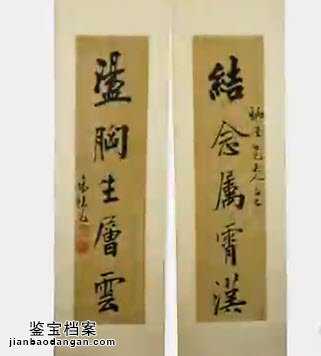 結念屬霄漢
盪胸生層雲
鉴宝档案
jianbaodangan.com